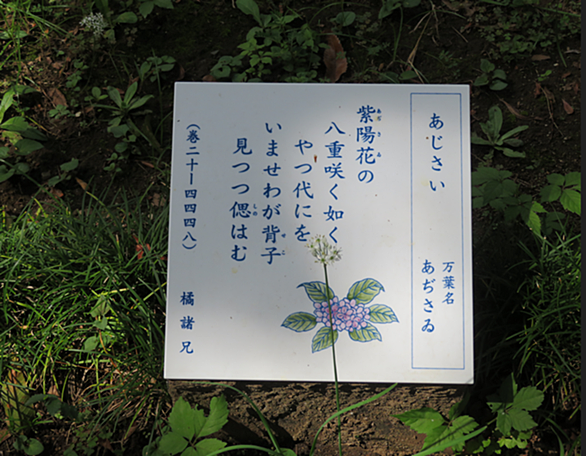 あじさい
万葉名
あぢさゐ
紫陽花の
あぢさゐ
八重咲く如く
やつ代にを
いませわが背子
せこ
見つつ偲はむ
しの
(巻二十―四四四八)
橘諸兄